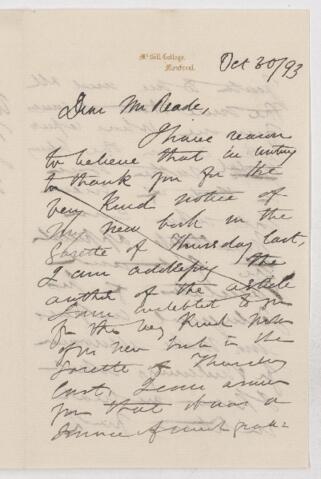 McGill College,
Montreal.
Oct 30/93
Dear Mr Reade,
I have reason
to believe that in writing
to thank you for the
very kind notice of
my new book in the
Gazette of Thursday last,
I am addressing the
author of the article
I am indebted to you
for the very kind notice
of my new book in the
Gazette of Thursday
last. I can assure
you that it was a
source of much grati-